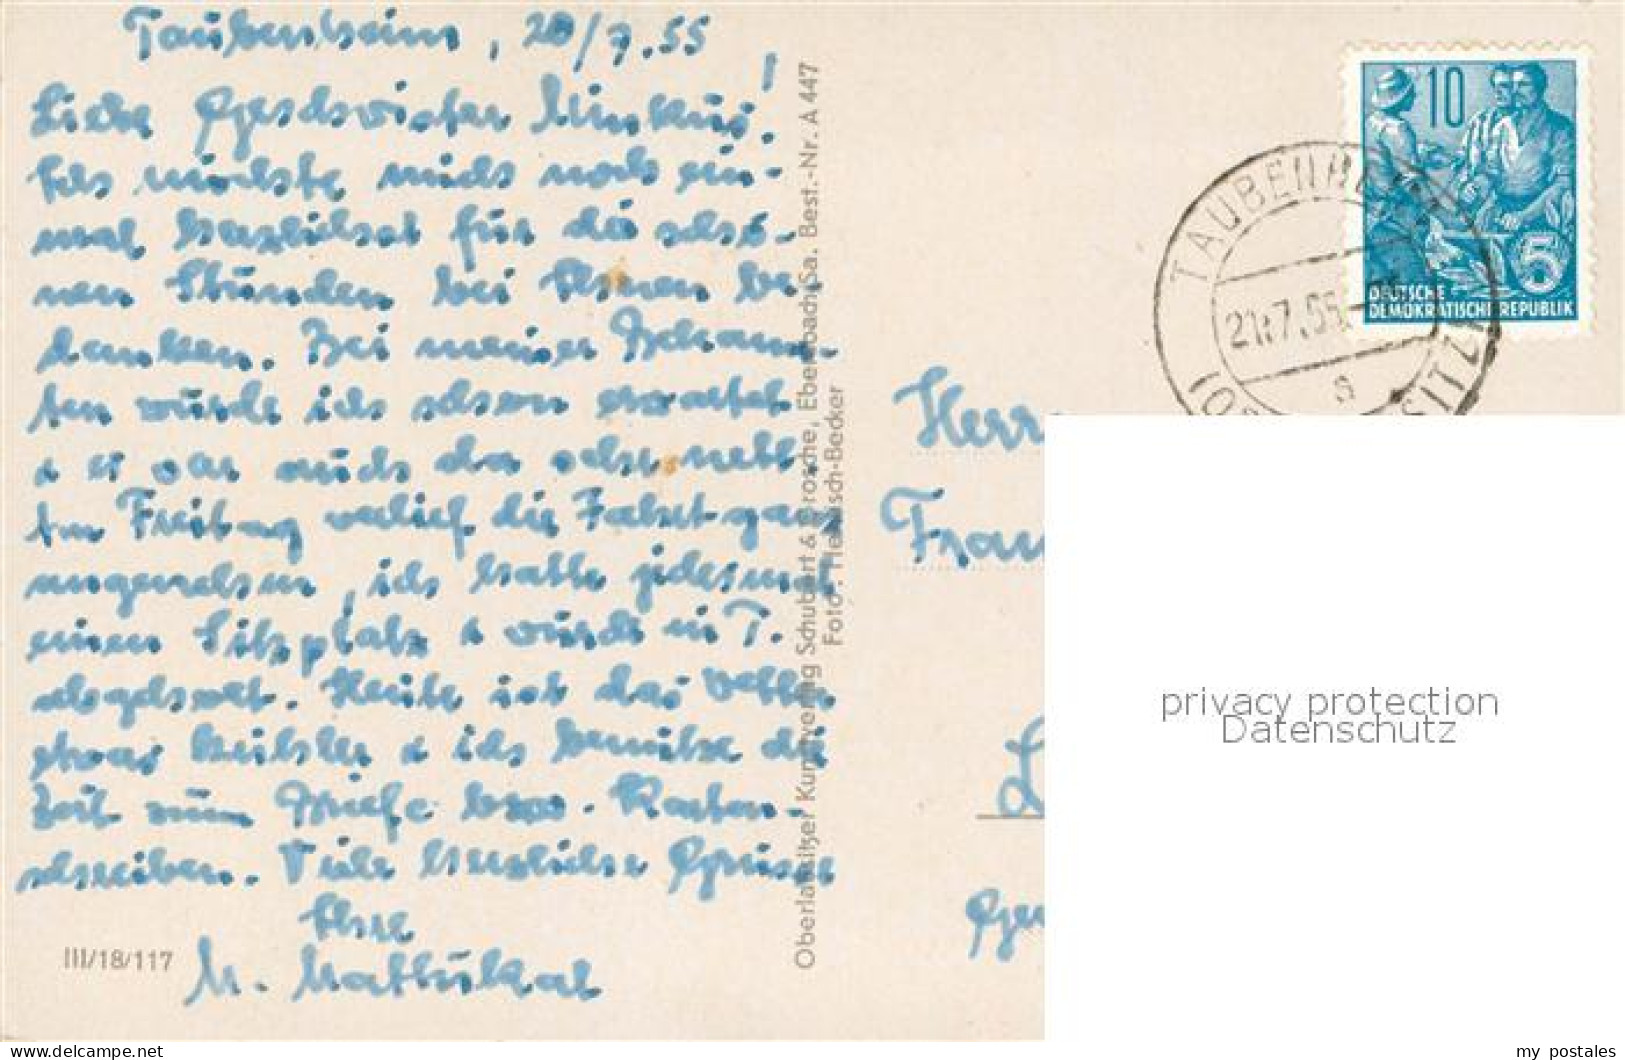 Taubenheim, 20/7.55
Liebe Geschwister Minkus!
Ich möchte mich noch ein-
mal herzlichst für die schö-
nen Stunden bei Ihnen be-
danken. Bei meinen Bekann-
ten wurde ich schon erwartet
& es war auch da sehr nett.
Am Freitag verlief die Fahrt ganz
angenehm, ich hatte jedesmal
einen Sitzplatz & wurde in T.
abgeholt. Heute ist das Wetter
etwas kühler & ich benutze die
Zeit zum Briefe bzw. Karten-
schreiben. Viele herzliche Grüsse
Ihre
III/18/117
M.
Oberlausitzer Kunstverlag Schubert & Brosche, Ebersbach/Sa. Best.-Nr. A 447
Foto:
10
5
DEUTSCHE
DEMOKRATISCHE REPUBLIK
TAUBENHEIM
21.7.55
s
Herr
Frau
privacy protection
Datenschutz
© www.delcampe.net
my_postales